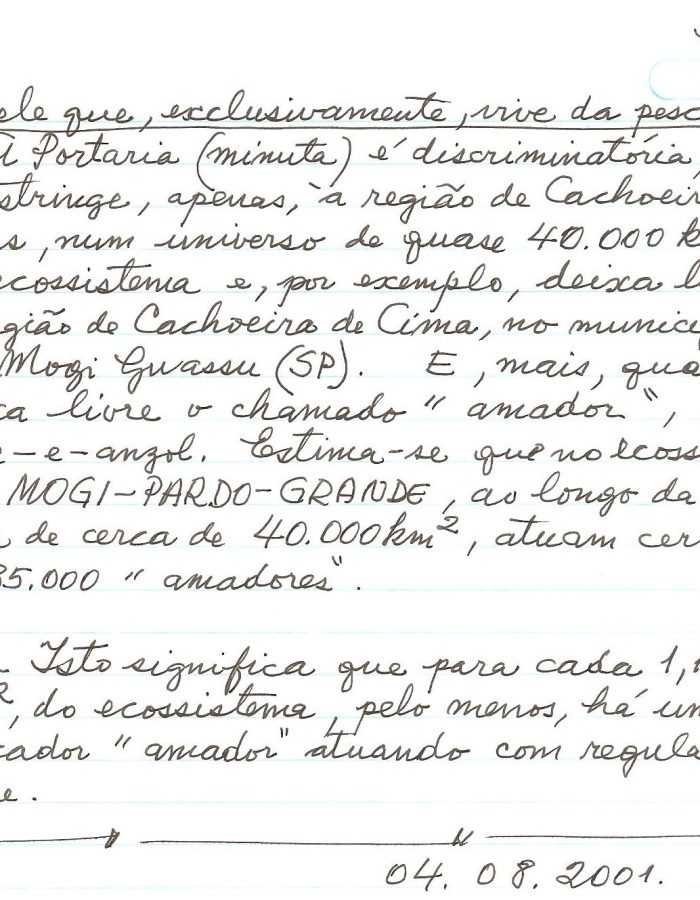 ele que, exclusivamente, vive da pesc
A Portaria (minuta) é discriminatória,
stringe, apenas, à região de Cachoeir
s, num universo de quase 40.000 k
ecossistema e, por exemplo, deixa l
gião de Cachoeira de Cima, no municí
Mogi Guassu (SP). E, mais, qua
ca livre o chamado "amador",
e-e-anzol. Estima-se que no ecoss
MOGI-PARDO-GRANDE, ao longo da
de cerca de 40.000 km², atuam cer
35.000 "amadores".
Isto significa que para cada 1,1
², do ecossistema, pelo menos, há um
cador "amador" atuando com regula
e.
04.08.2001.